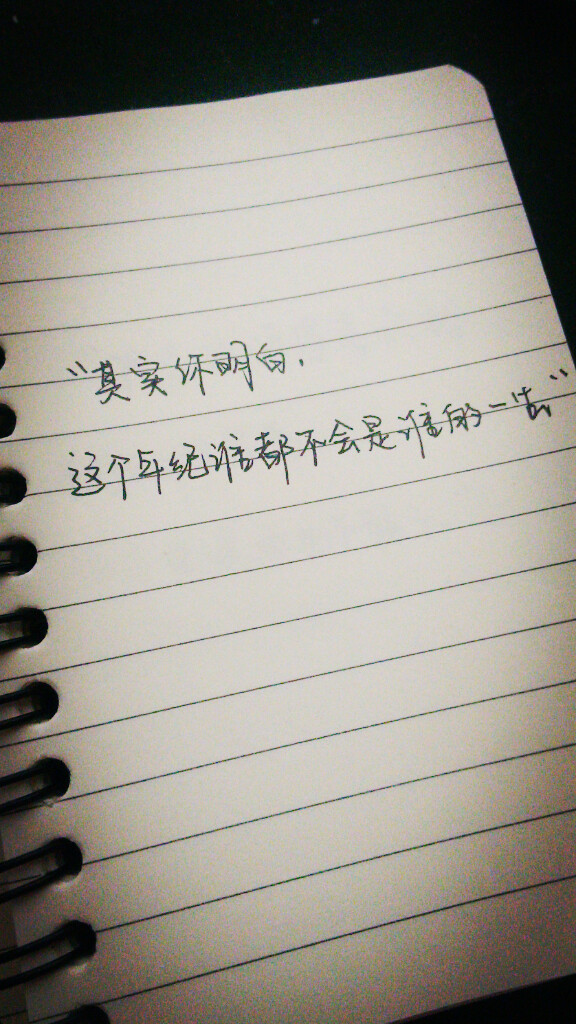 “其实你明白.
这个年纪谁都不会是谁的一生。”